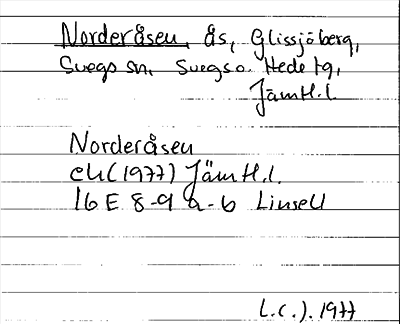 Norderåsen, ås, Glissjöberg,
Svegs sn, Svegs o. Hede tg,
Jämtl.l.
Norderåsen
ek (1977) Jämtl.l.
16 E 8-9 a-b Linsell
L.C.J. 1977